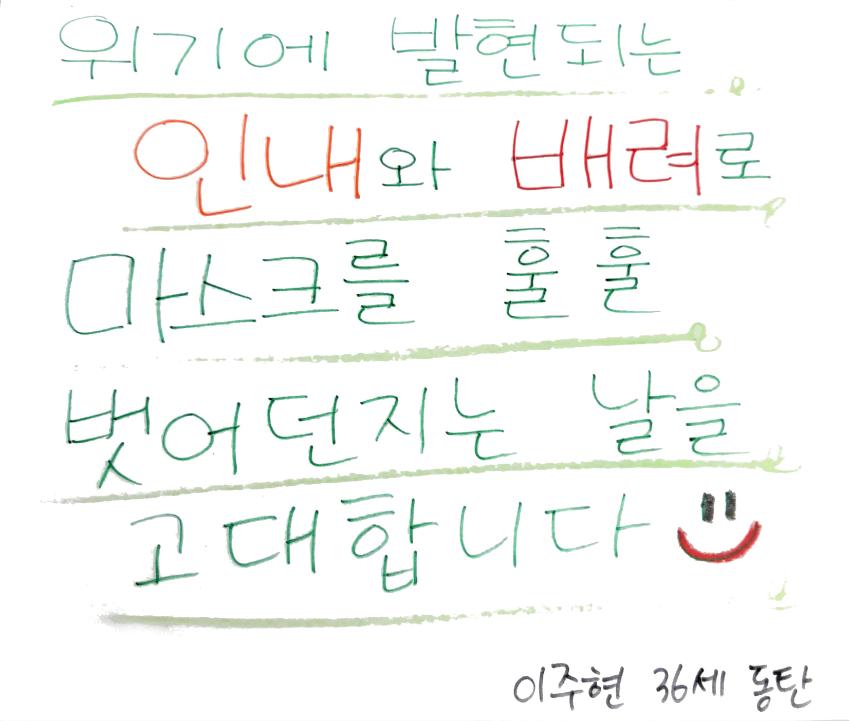 위기에 발현되는
인내와 배려로
마스크를 훌훌
벗어던지는 날을
고대합니다
이주현 36세 동탄